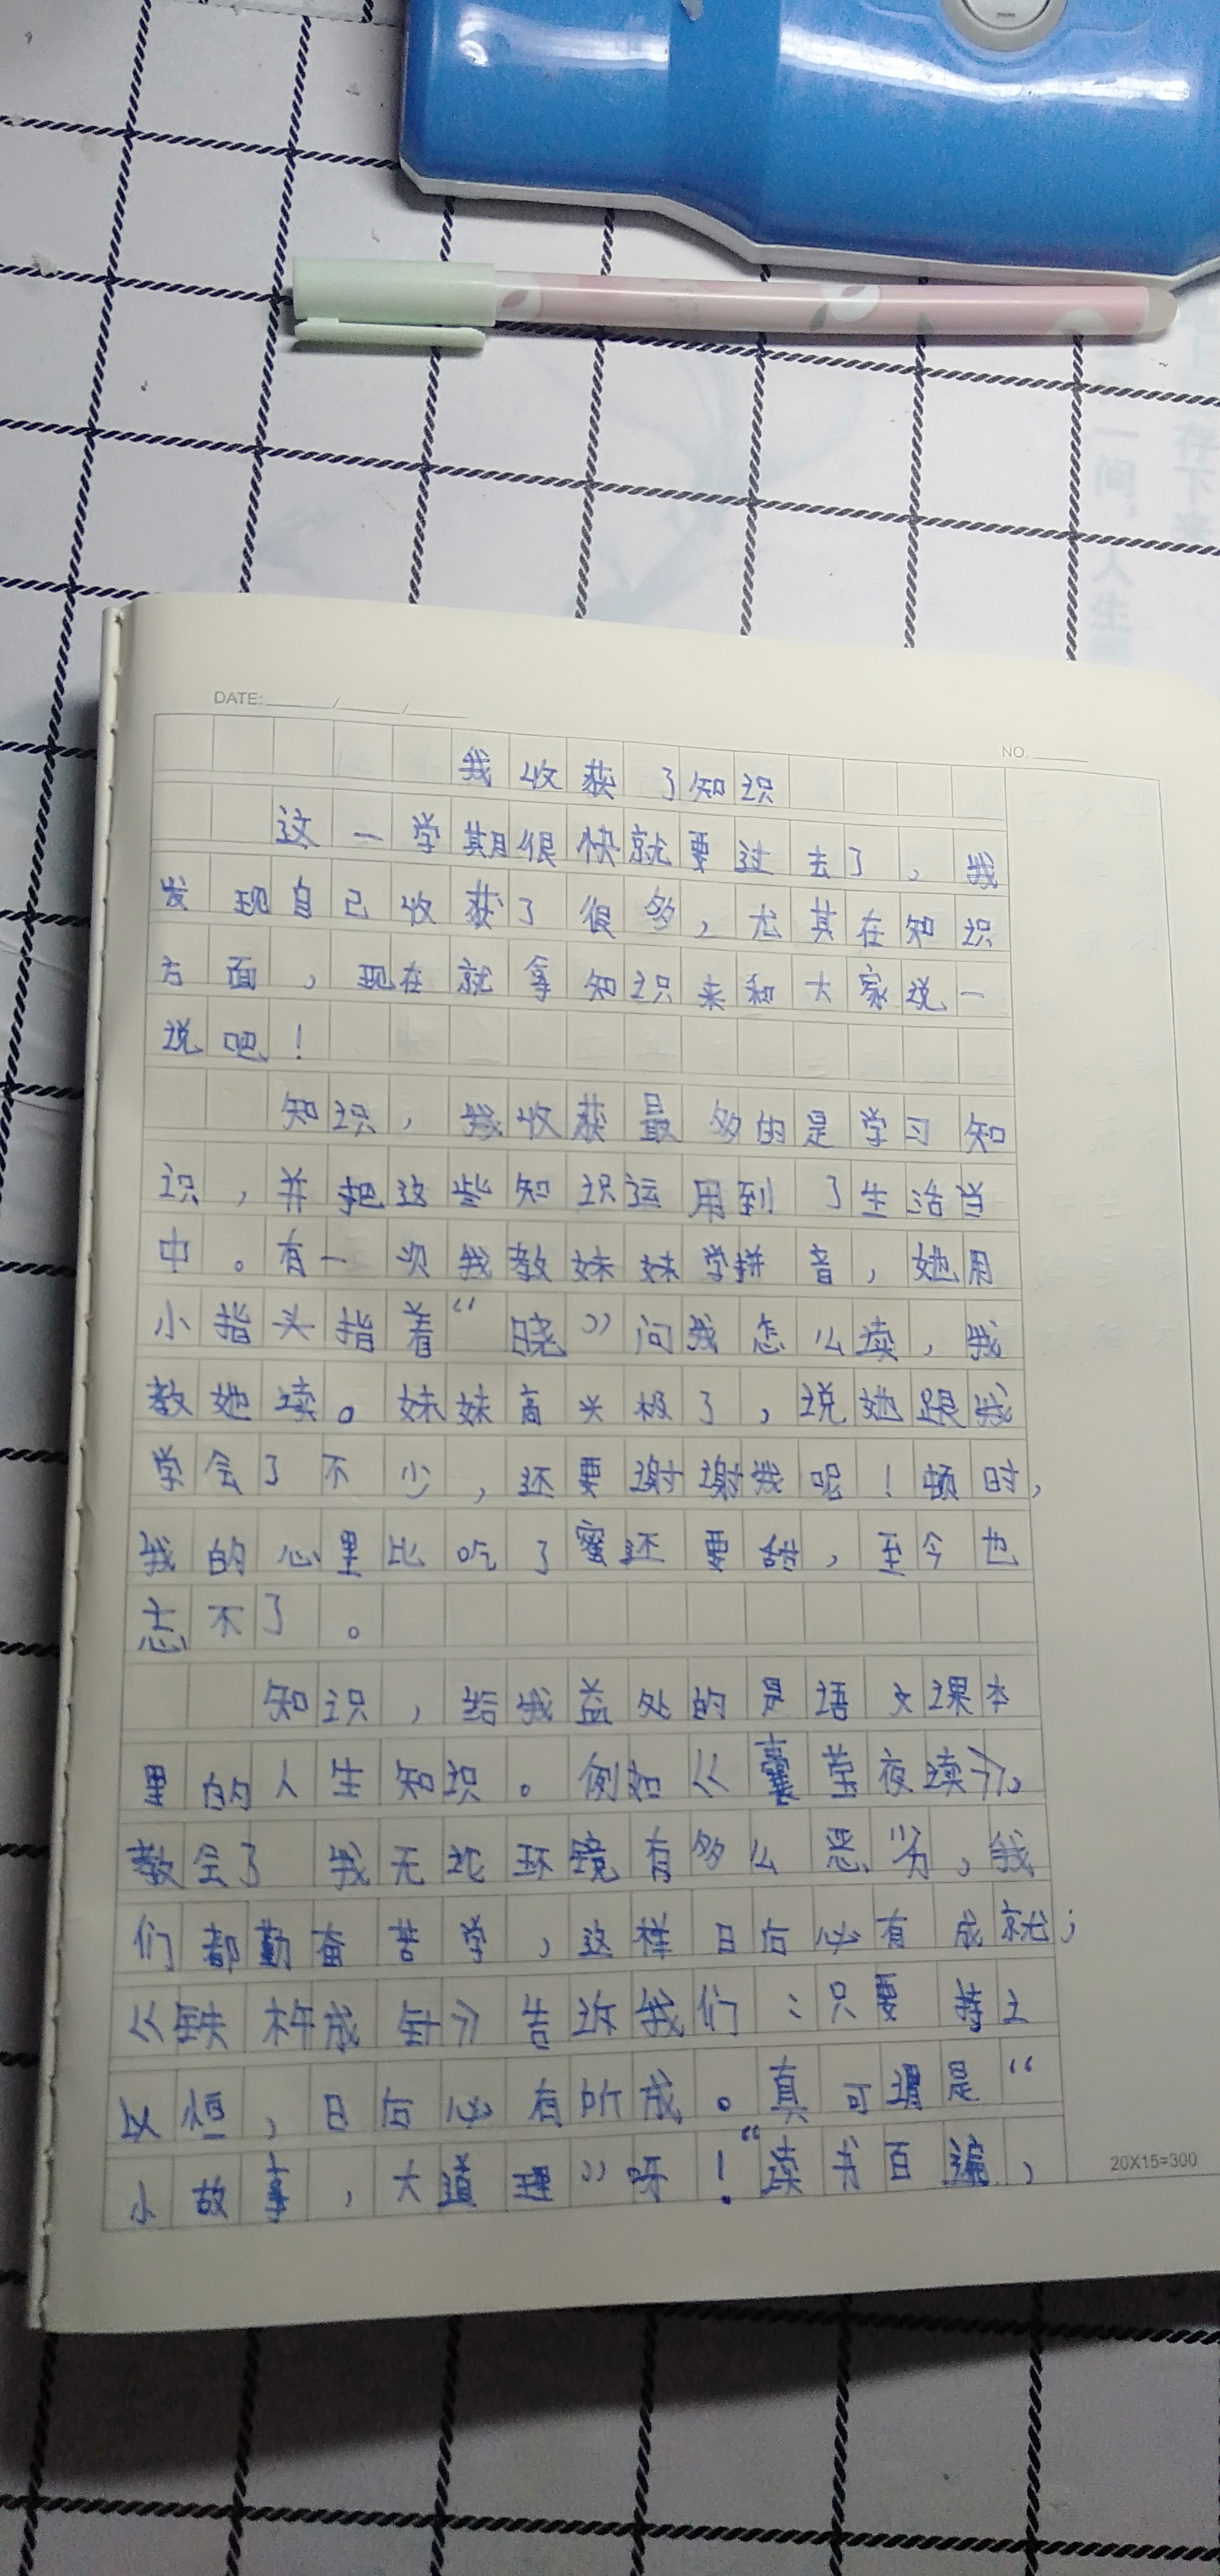 存下来
一间，人生
DATE: / /
NO.
我收获了知识
这一学期很快就要过去了，我
发现自己收获了很多，尤其在知识
方面，现在就拿知识来和大家说一
说吧！
知识，我收获最多的是学习知
识，并把这些知识运用到了生活当
中。有一次我教妹妹学拼音，她用
小指头指着“晓”问我怎么读，我
教她读。妹妹高兴极了，说她跟我
学会了不少，还要谢谢我呢！顿时，
我的心里比吃了蜜还要甜，至今也
忘不了。
知识，给我益处的是语文课本
里的人生知识。例如《囊萤夜读》。
教会了我无论环境有多么恶劣，我
们都勤奋苦学，这样日后必有成就；
《铁杵成针》告诉我们：只要持之
以恒，日后必有所成。真可谓是“
小故事，大道理”呀！“读书百遍，
20X15=300